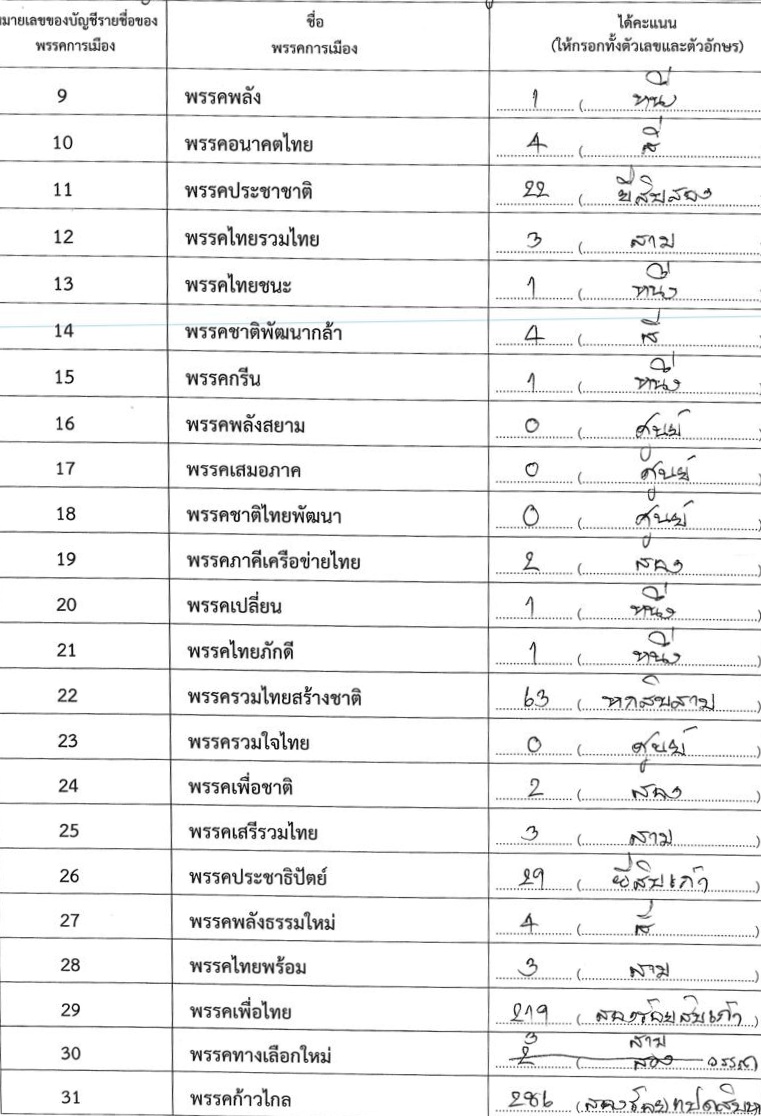 หมายเลขของบัญชีรายชื่อของ ชื่อ ได้คะแนน
พรรคการเมือง พรรคการเมือง (ให้กรอกทั้งตัวเลขและตัวอักษร)
9 พรรคพลัง 1 ( หนึ่ง
10 พรรคอนาคตไทย 4 ( สี่
11 พรรคประชาชาติ 22 ( ยี่สิบสอง
12 พรรคไทยรวมไทย 3 ( สาม
13 พรรคไทยชนะ 1 ( หนึ่ง
14 พรรคชาติพัฒนากล้า 4 ( สี่
15 พรรคกรีน 1 ( หนึ่ง
16 พรรคพลังสยาม 0 ( ศูนย์
17 พรรคเสมอภาค 0 ( ศูนย์ )
18 พรรคชาติไทยพัฒนา 0 ( ศูนย์ )
19 พรรคภาคีเครือข่ายไทย 2 ( สอง )
20 พรรคเปลี่ยน 1 ( หนึ่ง )
21 พรรคไทยภักดี 1 ( หนึ่ง )
22 พรรครวมไทยสร้างชาติ 63 ( หกสิบสาม )
23 พรรครวมใจไทย 0 ( ศูนย์ )
24 พรรคเพื่อชาติ 2 ( สอง )
25 พรรคเสรีรวมไทย 3 ( สาม )
26 พรรคประชาธิปัตย์ 29 ( ยี่สิบเก้า )
27 พรรคพลังธรรมใหม่ 4 ( สี่ )
28 พรรคไทยพร้อม 3 ( สาม )
29 พรรคเพื่อไทย 219 ( สองร้อยสิบเก้า )
3 สาม
30 พรรคทางเลือกใหม่ 2 ( สอง
31 พรรคก้าวไกล 286 (สองร้อยแปดสิบห